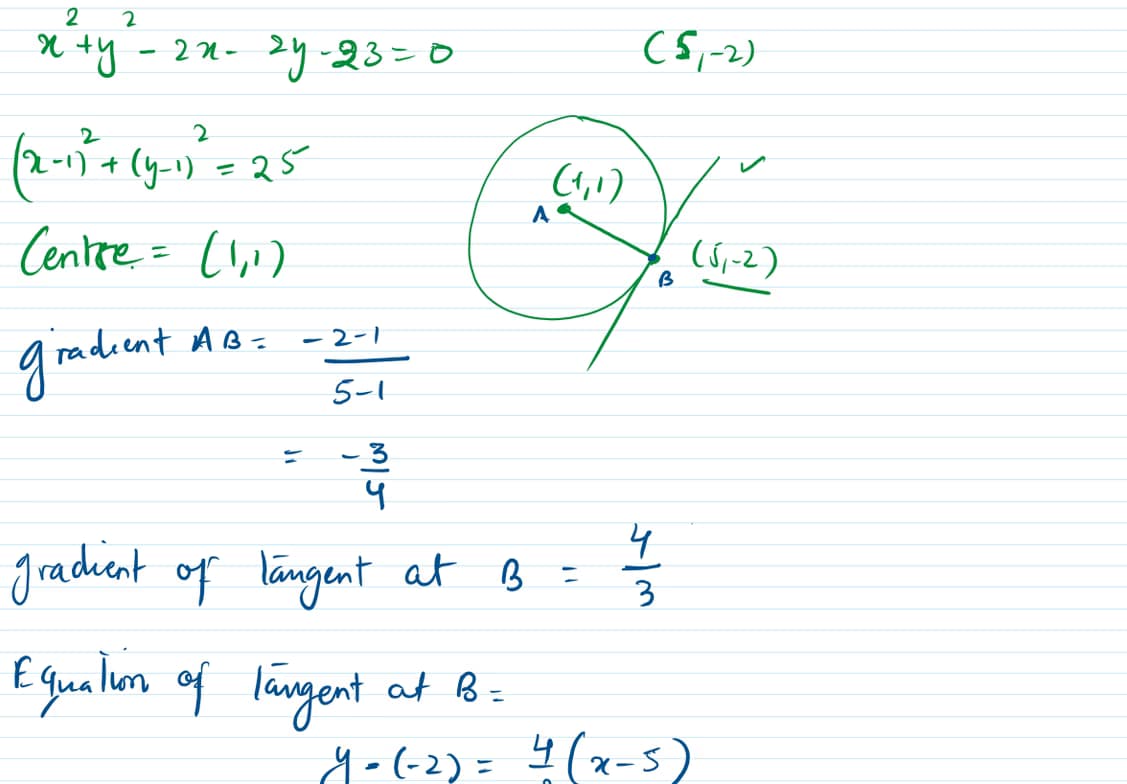 x² + y² - 2x - 2y - 23 = 0
(5, -2)
(x-1)² + (y-1)² = 25
(1,1)
A
Centre = (1,1)
(5, -2)
B
gradient AB = (-2-1)/(5-1)
= -3/4
gradient of tangent at B = 4/3
Equation of tangent at B =
y - (-2) = 4/ (x-5)